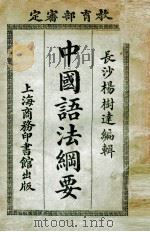 定審部育教
長沙楊樹達編輯
中國語法綱要
上海商務印書館出版